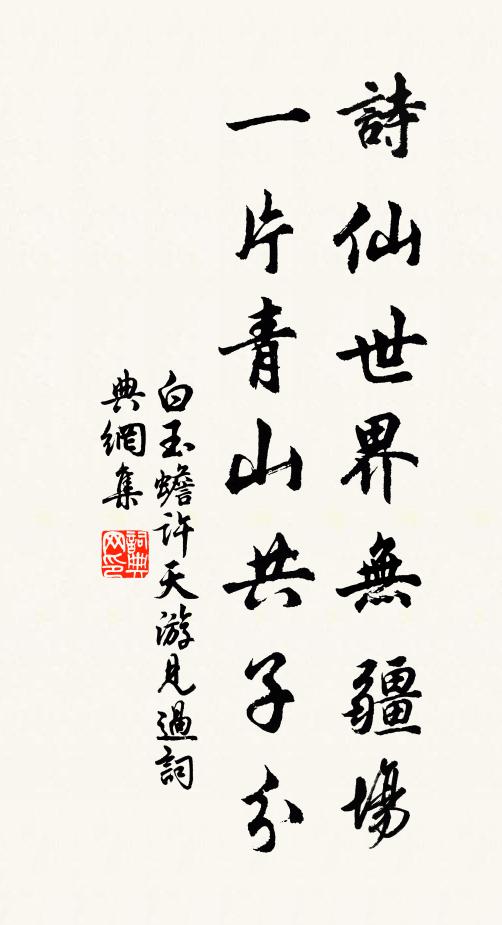 詩仙世界無疆場
一片青山共子分
白玉蟾許天游見過詞
典網集
詞典
网印